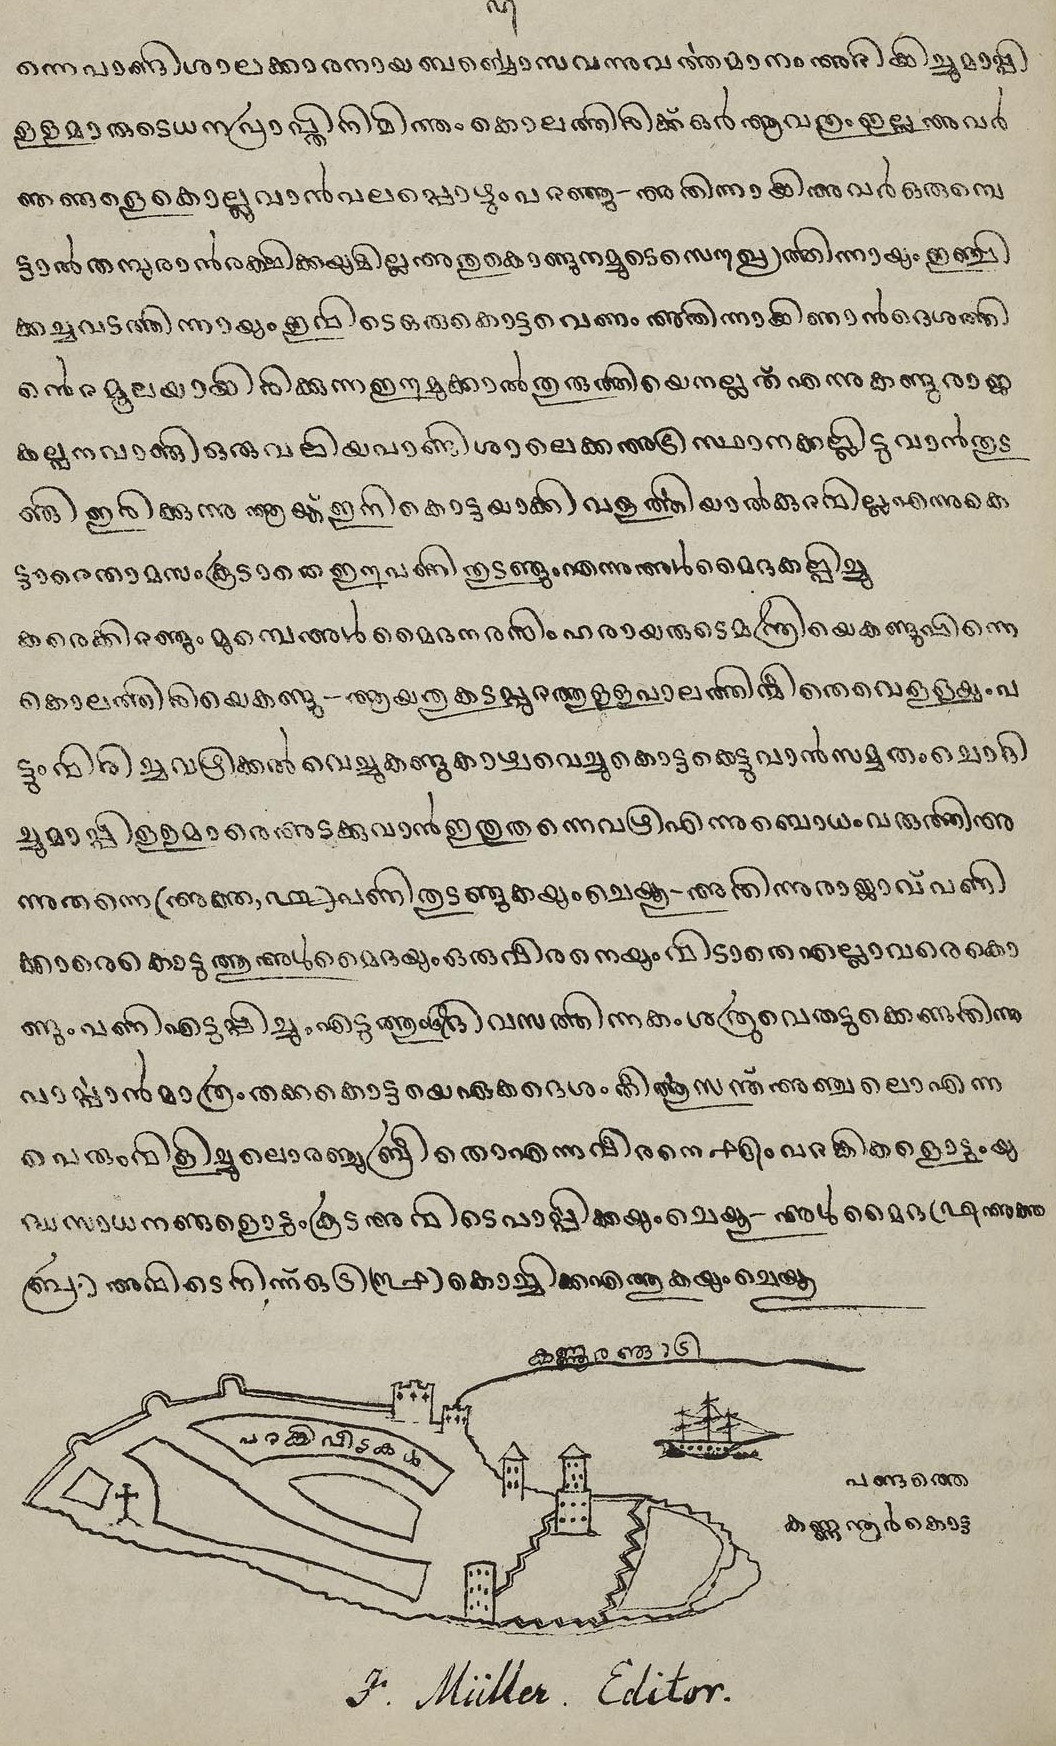 ന്നെ പാണ്ടിശാലക്കാരനായ ബൎബ്ബൊസ വന്നു വൎത്തമാനം അറിയിച്ചു മാപ്പി
ള്ളമാരുടെ ധനപ്രാപ്തിനിമിത്തം കൊലത്തിരിക്ക് ഒർ ആവതും ഇല്ല അവർ
ഞങ്ങളെ കൊല്ലുവാൻ പലപ്പൊഴും പറഞ്ഞു- അതിന്നായി അവർ ഒരുമ്പെ
ട്ടാൽ തമ്പുരാൻ രക്ഷിക്കയുമില്ല അതുകൊണ്ടു നമ്മുടെ സൌഖ്യത്തിന്നായും ഇഞ്ചി
ക്കച്ചവടത്തിന്നായും ഇവിടെ ഒരു കൊട്ട വെണം അതിന്നായി ഞാൻ ദെശത്തി
ൻറെ മൂലയായിരിക്കുന്ന ഈ മുക്കാൽ തുരുത്തിയെ നല്ലത് എന്നു കണ്ടു രാജ
കല്പന വാങ്ങി ഒരു വലിയ പാണ്ടിശാലെക്ക അടിസ്ഥാനക്കല്ലിട്ടുവാൻ തുട
ങ്ങി ഇരിക്കുന്നു ആയ്ത് ഇനി കൊട്ടയാക്കി വളൎത്തിയാൽ കുറവില്ല എന്നു കെ
ട്ടാരെ താമസം കൂടാതെ ഈ പണി തുടങ്ങും എന്നു അൾമൈദ കല്പിച്ചു
കരെക്കിറങ്ങും മുമ്പെ അൾമൈദ നരസിംഹരായരുടെ മന്ത്രിയെ കണ്ടു പിന്നെ
കൊലത്തിരിയെ കണ്ടു- ആയതു കടപ്പുറത്തുള്ള പാലത്തിന്മീതെ വെള്ളയും പ
ട്ടും വിരിച്ച വഴിക്കൽ വെച്ചു കണ്ടു കാഴ്ച വെച്ചു കൊട്ട കെട്ടുവാൻ സമ്മതം ചൊദി
ച്ചു മാപ്പിള്ളമാരെ അടക്കുവാൻ ഇതു തന്നെ വഴി എന്നു ബൊധം വരുത്തി അ
ന്നു തന്നെ (അക്ത, ൨൩) പണി തുടങ്ങുകയും ചെയ്തു- അതിന്നു രാജാവ് പണി
ക്കാരെ കൊടുത്തു അൾമൈദയും ഒരു വീരനെയും വിടാതെ എല്ലാവരെ കൊ
ണ്ടും പണി എടുപ്പിച്ചും എട്ടു ദിവസത്തിന്നകം ശത്രുവെ തടുക്കെണ്ടതിന്നു
പാൎപ്പാൻ മാത്രം തക്ക കൊട്ടയെ ഏകദെശം തീൎത്തു സന്ത് അഞ്ചലൊ എന്ന
പെരും വിളിച്ചു ലൊരഞ്ചു ബ്രീതൊ എന്ന വീരനെ ൧൫൦ പറങ്കികളൊടും യു
ദ്ധസാധനങ്ങളൊടും കൂട അവിടെ പാൎപ്പിക്കയും ചെയ്തു- അൾമൈദ (൨൭ അക്ത
ബ്ര) അവിടെ നിന്ന് ഓടി (൩൦) കൊച്ചിക്ക എത്തുകയും ചെയ്തു
കണ്ണൂരങ്ങാടി
പറങ്കി വീടകൾ
പണ്ടത്തെ
കണ്ണനൂർകൊട്ട
F. Müller. Editor.